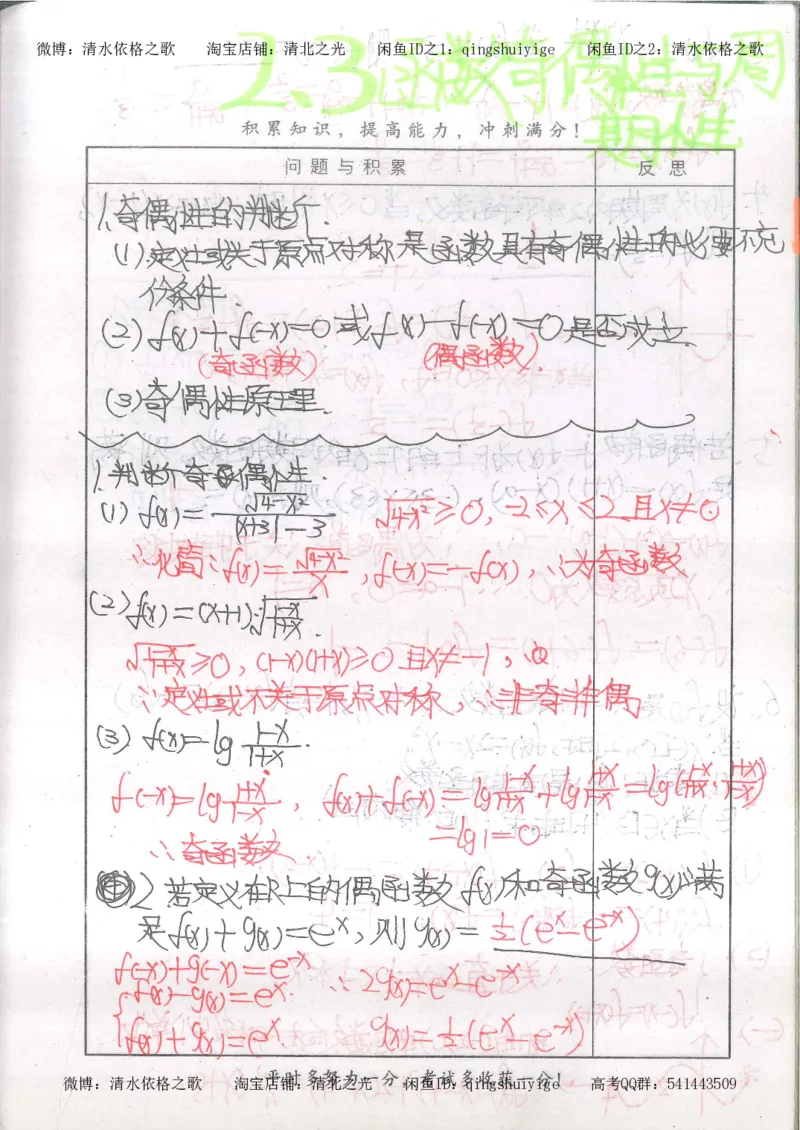 微博：清水依格之歌 淘宝店铺：清北之光 闲鱼ID之1：qingshuiyige 闲鱼ID之2：清水依格之歌
2.3函数奇偶性与周
期性
积累知识，提高能力，冲刺满分！
问题与积累 反思
1.奇偶性的判断.
(1)定义域关于原点对称是函数具有奇偶性的必要不充
分条件.
(2) f(x)+f(-x)=0或f(x)-f(-x)=0是否成立.
(奇函数) (偶函数).
(3)奇偶性原理.
1.判断奇函偶性.
(1) f(x)=√(4-x²)/(|x+3|-3) √(4-x²)≥0, -2≤x≤2且x≠0
∴化简:f(x)=√(4-x²)/x, f(-x)=-f(x), ∴为奇函数
(2) f(x)=(x+1)·√((1-x)/(1+x)).
√((1-x)/(1+x))≥0, (1-x)(1+x)≥0且x≠-1,
∴定义域不关于原点对称, ∴非奇非偶
(3) f(x)=lg (1-x)/(1+x).
f(-x)=lg (1+x)/(1-x), f(x)+f(-x)=lg (1-x)/(1+x)+lg (1+x)/(1-x)=lg((1-x)/(1+x)·(1+x)/(1-x))
=lg1=0
∴奇函数
2 若定义在R上的偶函数f(x)和奇函数g(x)满
足f(x)+g(x)=e^x, 则g(x)=½(e^x-e^-x)
f(-x)+g(-x)=e^-x ∴2g(x)=e^x-e^-x
f(x)-g(x)=e^-x.
f(x)+g(x)=e^x. g(x)=½(e^x-e^-x)
平时多努力一分，考试多收获一分！
微博：清水依格之歌 淘宝店铺：清北之光 闲鱼ID：qingshuiyige 高考QQ群：541443509